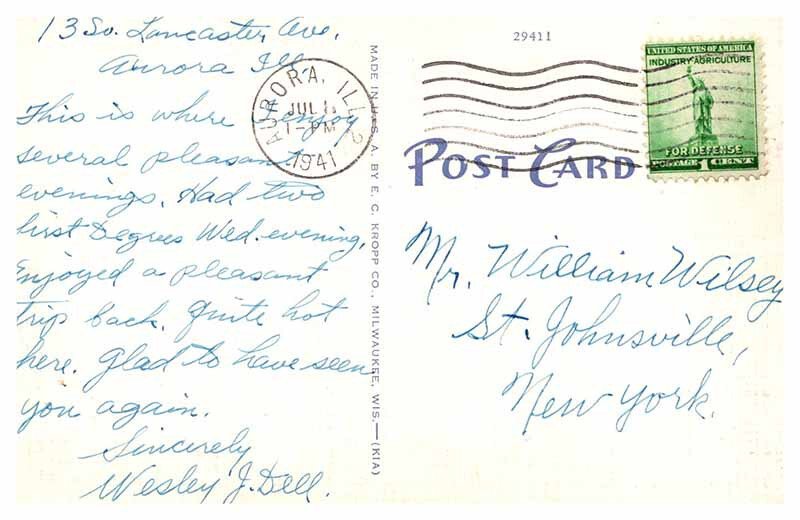 13 So. Lancaster Ave.
Aurora Ill.
This is where I enjoy
several pleasant
evenings. Had two
first Degrees Wed. evening.
Enjoyed a pleasant
trip back. Quite hot
here. Glad to have seen
you again.
Sincerely
Wesley J. Dell.
AURORA, ILL.
JUL
1-PM
1941
MADE IN U. S. A. BY E. C. KROPP CO., MILWAUKEE, WIS.—(KIA)
29411
UNITED STATES OF AMERICA
INDUSTRY AGRICULTURE
FOR DEFENSE
POSTAGE 1 CENT
POST CARD
Mr. William Wilsey
St. Johnsville,
New York.